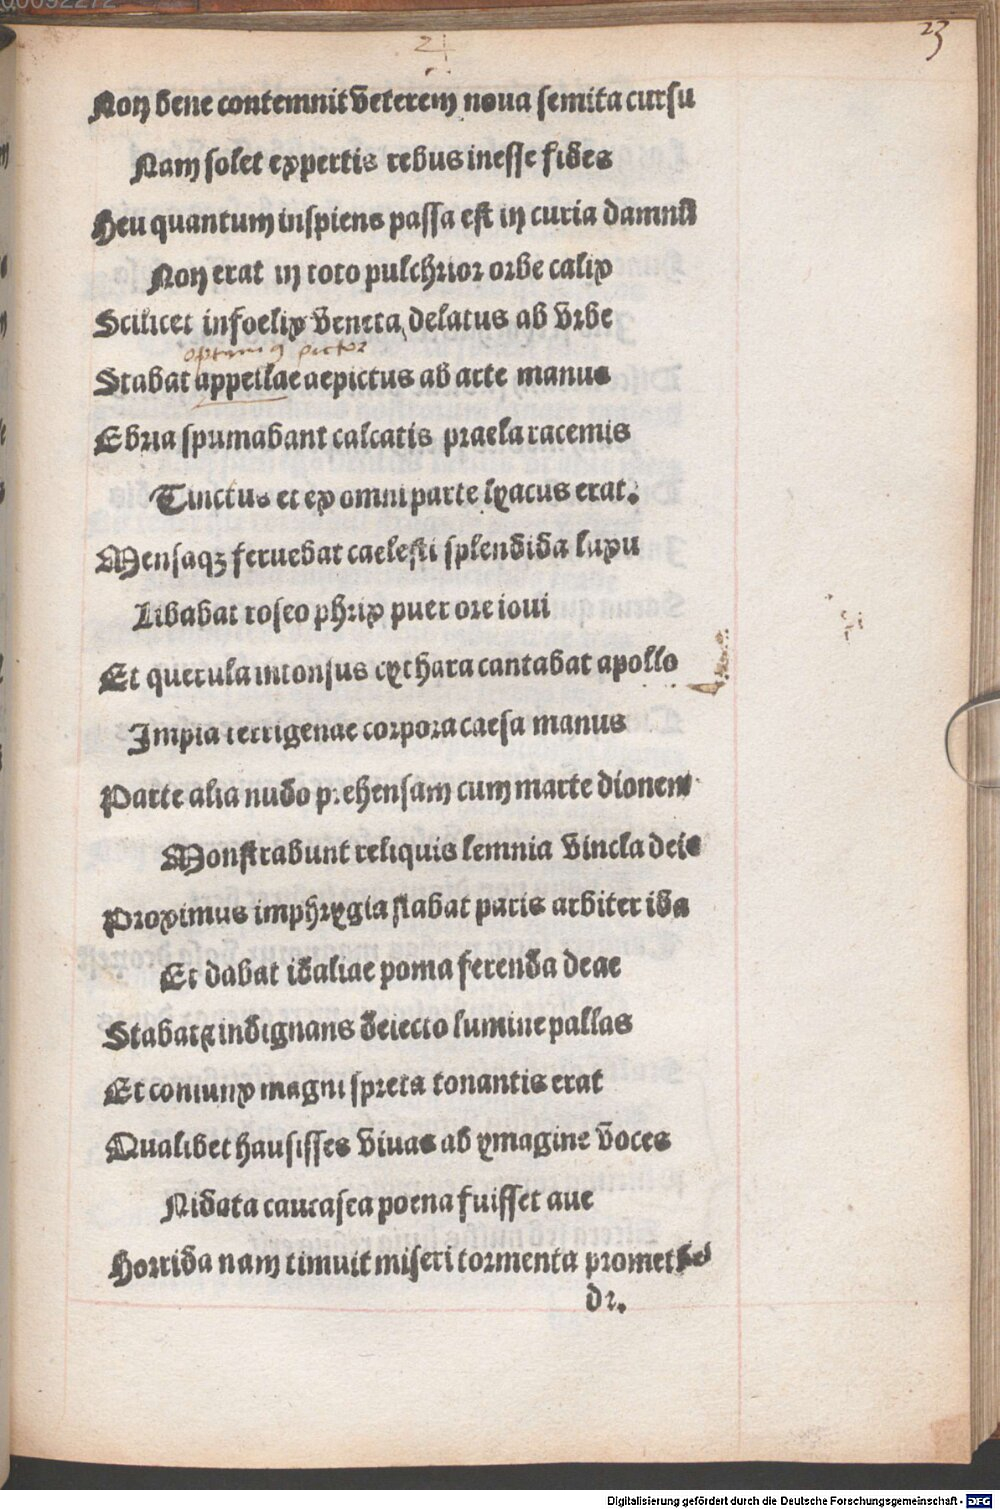 23
24
Non bene contemnit veterem noua semita cursu
Nam solet expertis rebus inesse fides
Heu quantum insipiens passa est in curia damnū
Non erat in toto pulchrior orbe calix
Scilicet infoelix veneta delatus ab vrbe
optimus pictor
Stabat appellaea epictus ab arte manus
Ebria spumabant calcatis praela racemis
Tinctus et ex omni parte lyaeus erat.
Mensaqꝫ feruebat caelesti splendida luxu
Libabat roseo phrix puer ore ioui
Et querula intonsus cythara cantabat apollo
Impia terrigenae corpora caesa manus
Parte alia nudo prehensam cum marte dionem
Monstrabunt reliquis lemnia vincla deis
Proximus imphrygia stabat paris arbiter ida
Et dabat idaliae poma ferenda deae
Stabat& indignans deiecto lumine pallas
Et coniunx magni spreta tonantis erat
Qualibet hausisses viuas ab ymagine voces
Ni data caucasea poena fuisset aue
Horrida nam timuit miseri tormenta promethei
Digitalisierung gefördert durch die Deutsche Forschungsgemeinschaft - DFG